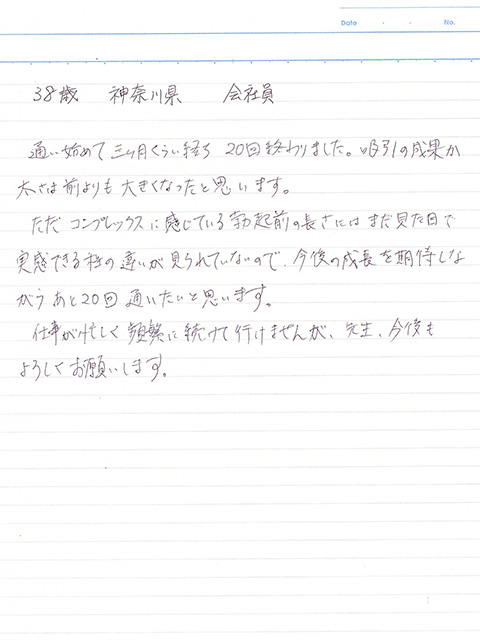 Date ・ ・ No.
38歳 神奈川県 会社員
通い始めて三ヶ月くらい経ち 20回終わりました。吸引の成果か
太さは前よりも大きくなったと思います。
ただ コンプレックスに感じている勃起前の長さにはまだ見た目で
実感できる程の違いが見られていないので、今後の成長を期待しな
がら あと20回 通いたいと思います。
仕事が忙しく 頻繁に続けて行けませんが、先生、今後も
よろしくお願いします。